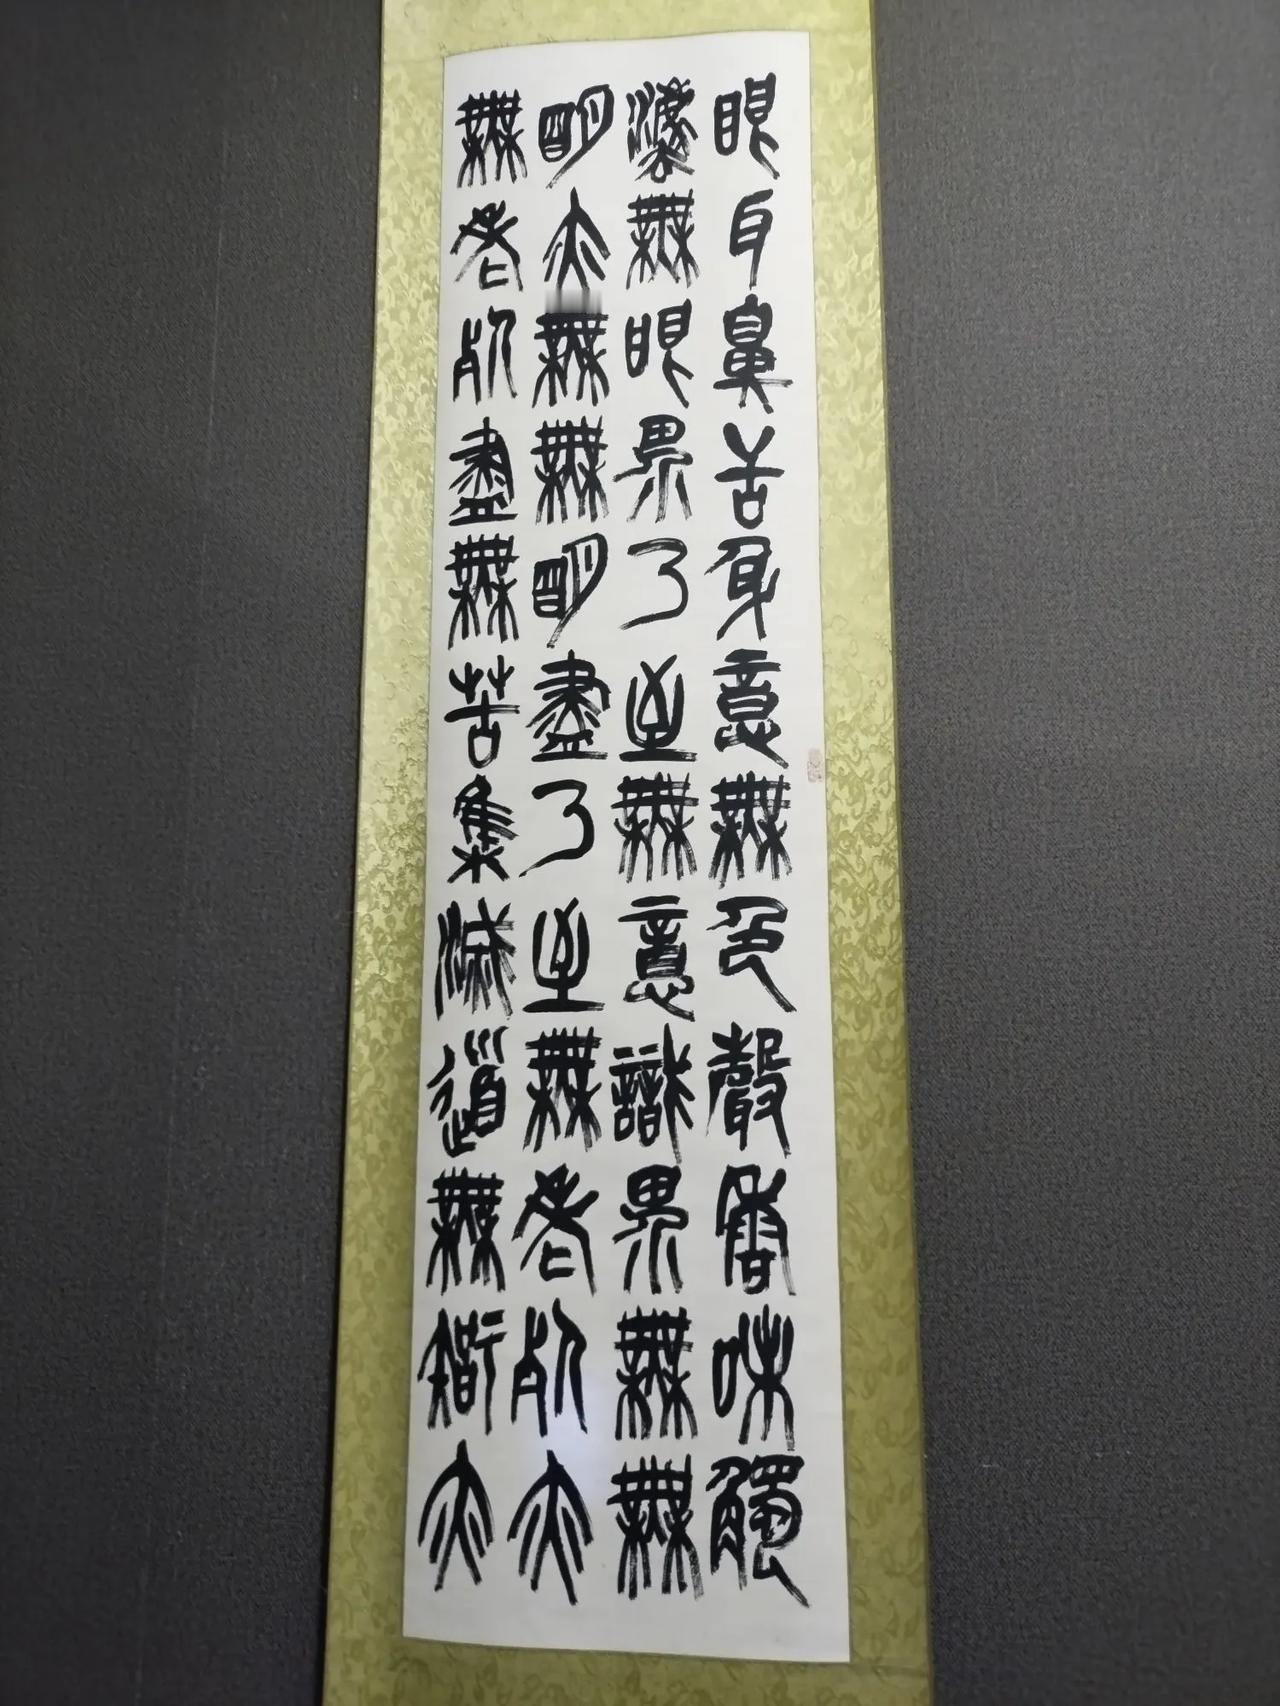 眼耳鼻舌身意無色聲香味觸
灋無眼界乃至無意識界無無
明亦無無明盡乃至無老死亦
無老死盡無苦集滅道無智亦